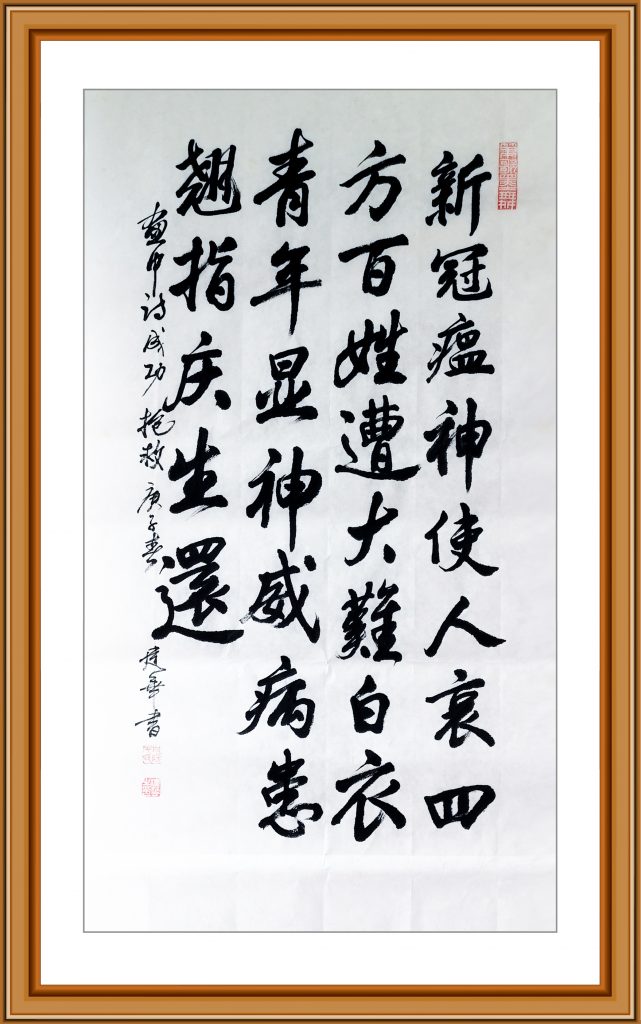 新冠瘟神使人哀四
方百姓遭大難白衣
青年显神威病患
翘指庆生還
画中诗成功抢救 庚子春 建華书